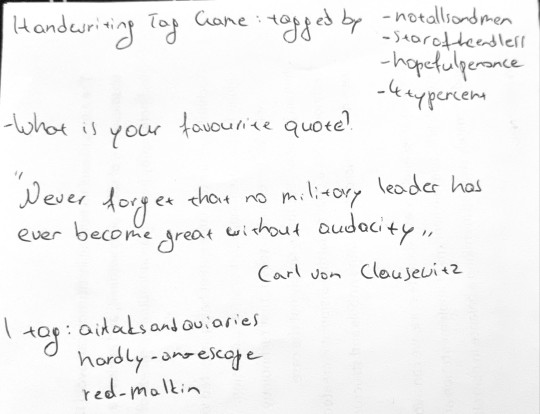 Handwriting Tag Game: tagged by
- notallsandmen
- starofteendless
- hopefulperance
- 4typercent
- What is your favourite quote?
"Never forget that no military leader has
ever become great without audacity,,
Carl von Clausevitz
I tag:
hardly-an-escape
red-malkin